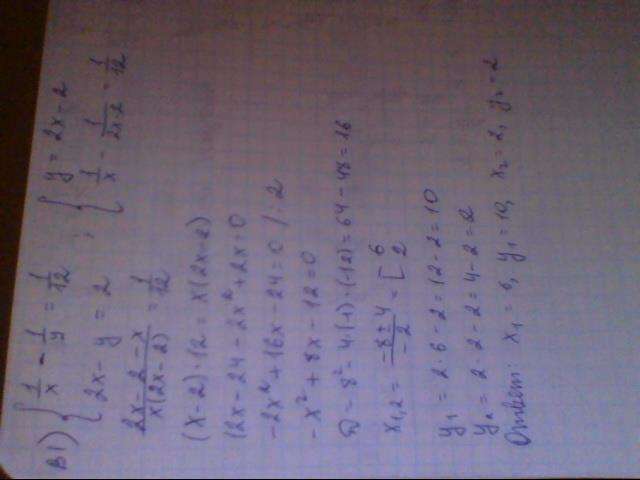 B1) { 1/x - 1/y = 1/12 ; { y = 2x - 2
{ 2x - y = 2 { 1/x - 1/(2x-2) = 1/12
(2x - 2 - x)/(x(2x-2)) = 1/12
(x-2)·12 = x(2x-2)
12x - 24 - 2x² + 2x = 0
-2x² + 16x - 24 = 0 /:2
-x² + 8x - 12 = 0
D = 8² - 4·(-1)·(-12) = 64 - 48 = 16
x₁,₂ = (-8 ± 4)/(-2) = [ 6 2
y₁ = 2·6 - 2 = 12 - 2 = 10
y₂ = 2·2 - 2 = 4 - 2 = 2
Ответ: x₁ = 6, y₁ = 10, x₂ = 2, y₂ = 2